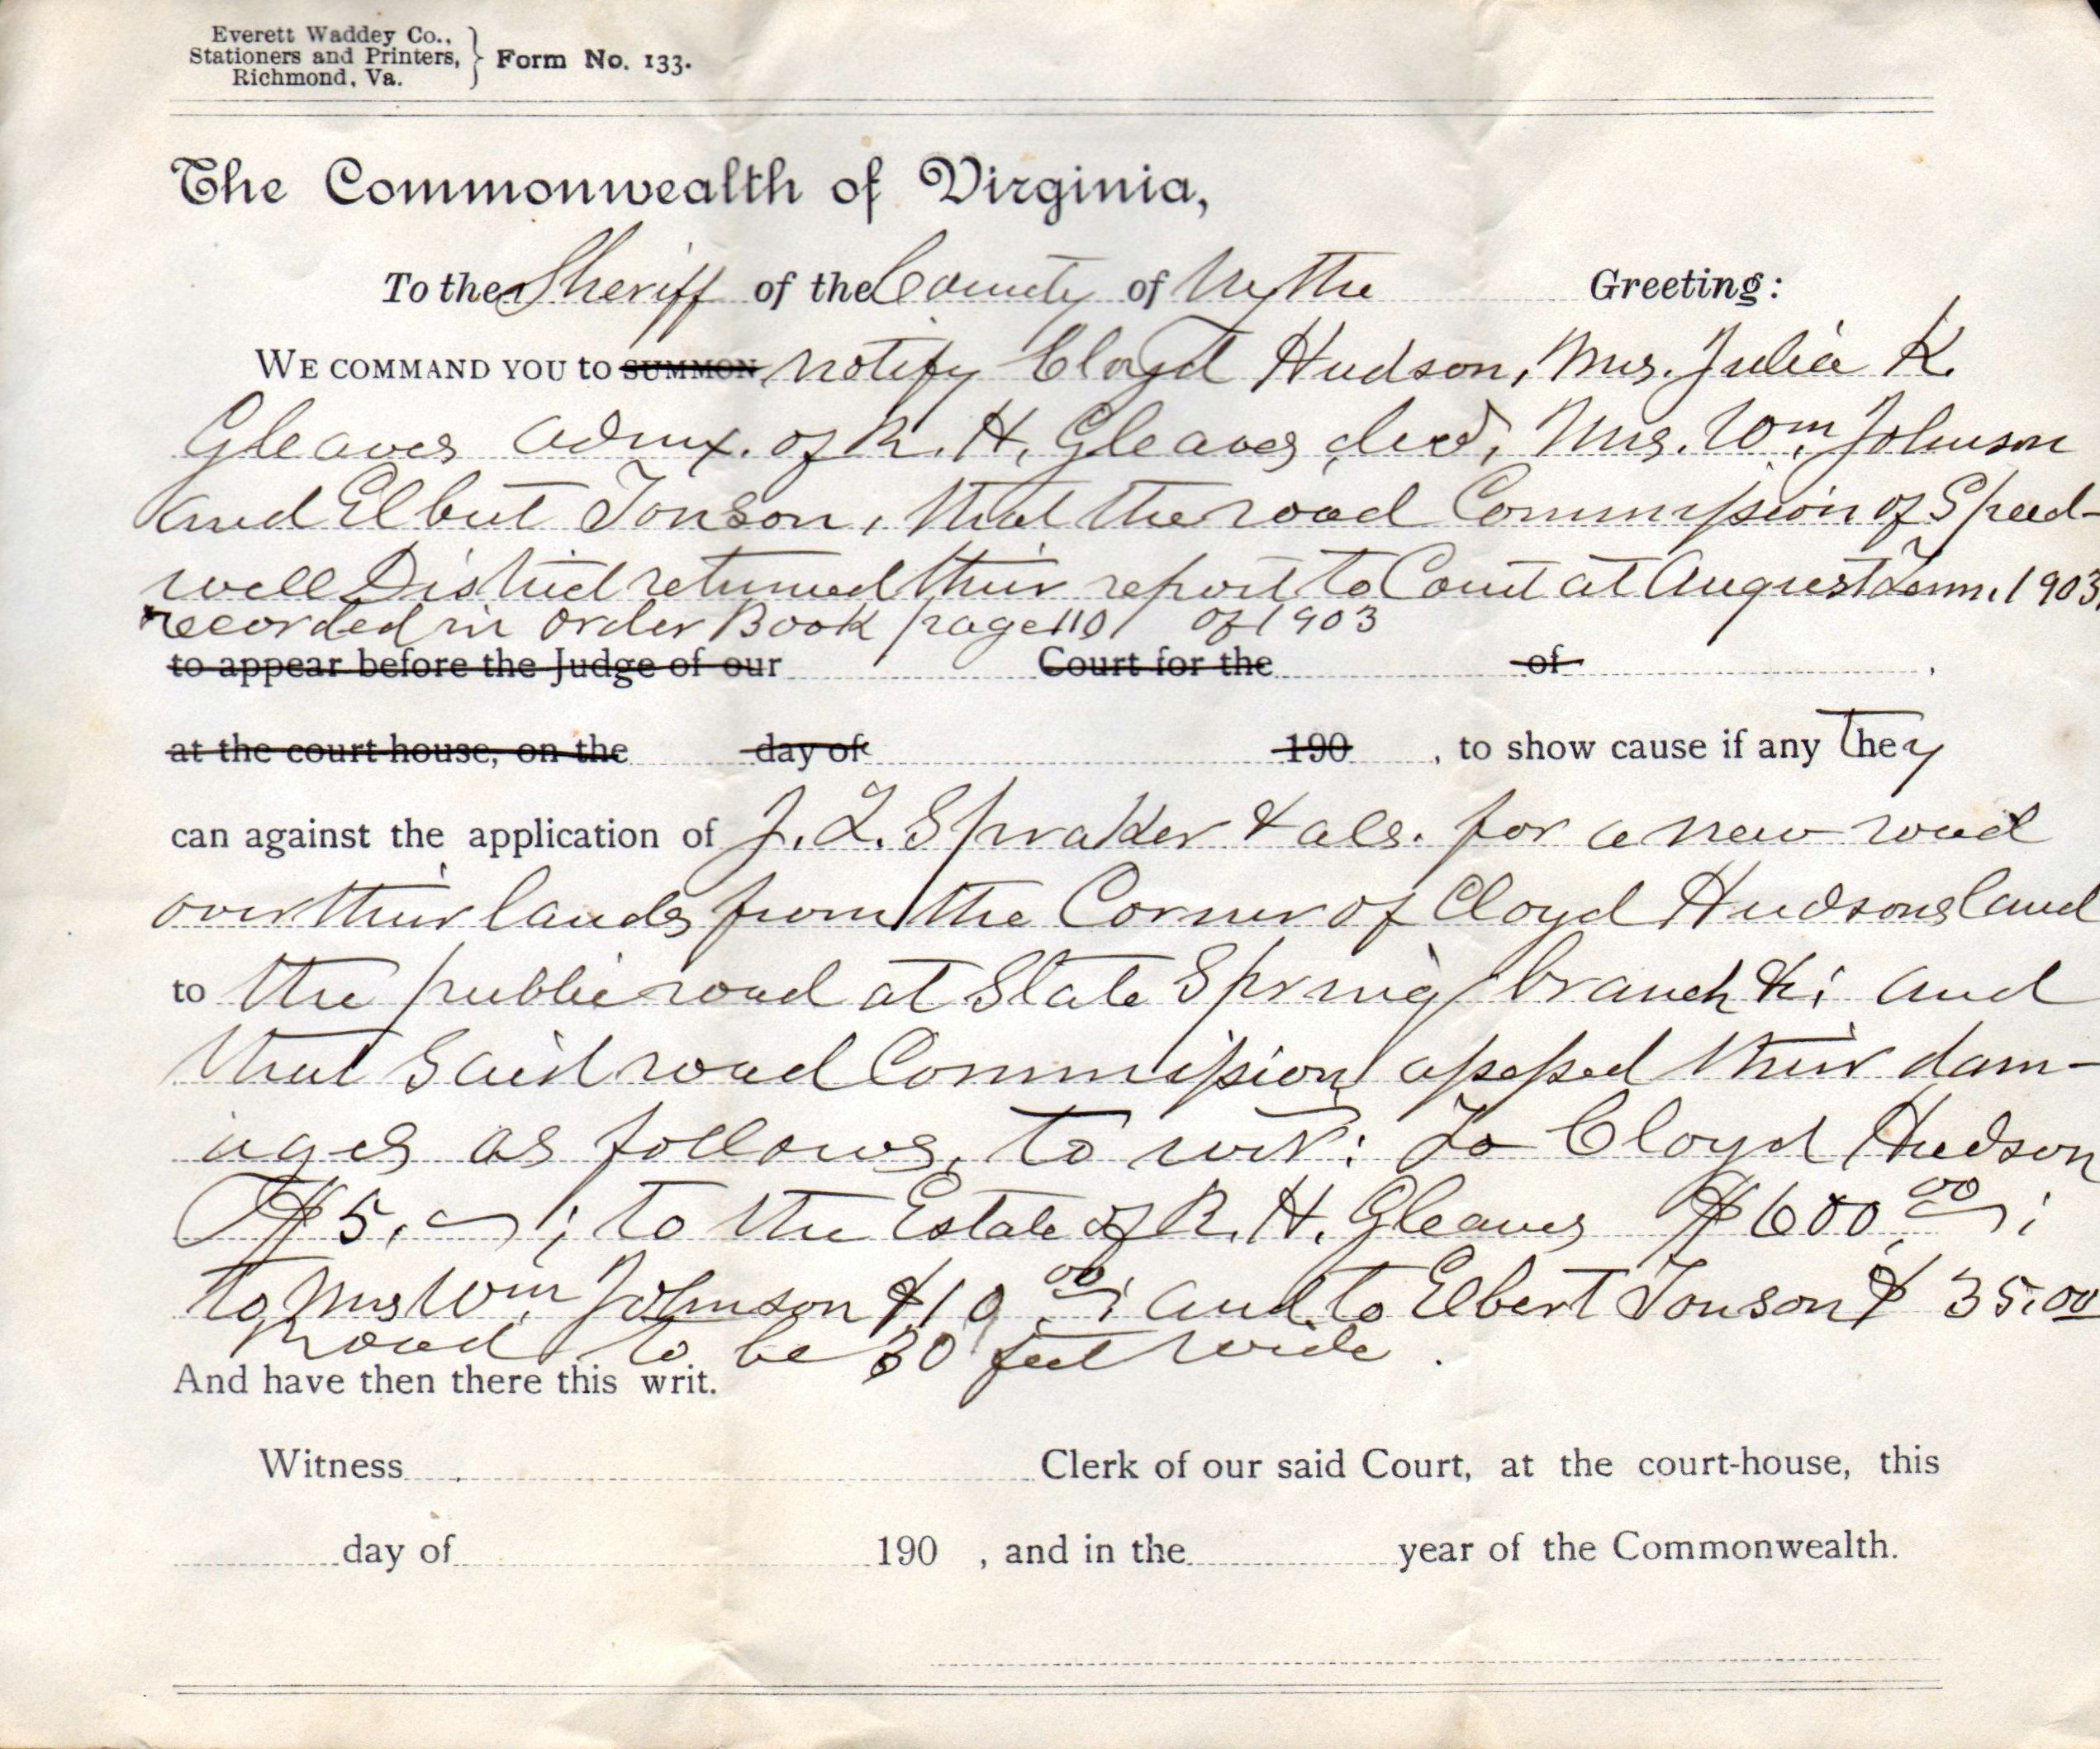 Everett Waddey Co.,
Stationers and Printers,
Richmond, Va.
Form No. 133.
The Commonwealth of Virginia,
To the Sheriff of the County of Wythe Greeting:
WE COMMAND YOU to SUMMON notify Cloyd Hudson, Mrs. Julia K.
Gleaves Admx. of R. H. Gleaves decd, Mrs. Wm. Johnson
and Elbert Jonson, that the road Commission of Speed-
well District returned their report to Court at August Term. 1903
recorded in Order Book page 110 of 1903
to appear before the Judge of our Court for the of
at the court house, on the day of 190 , to show cause if any they
can against the application of J. L. Spraker & als. for a new road
over their lands from the Corner of Cloyd Hudsons land
to the public road at State Spring branch &; and
that said road Commission assessed their dam-
ages as follows, to wit: To Cloyd Hudson
$5. ; to the Estate of R. H. Gleaves $600.00;
to Mrs Wm. Johnson $10.00; and to Elbert Jonson $ 35.00
Road to be 30 feet wide.
And have then there this writ.
Witness Clerk of our said Court, at the court-house, this
day of 190 , and in the year of the Commonwealth.